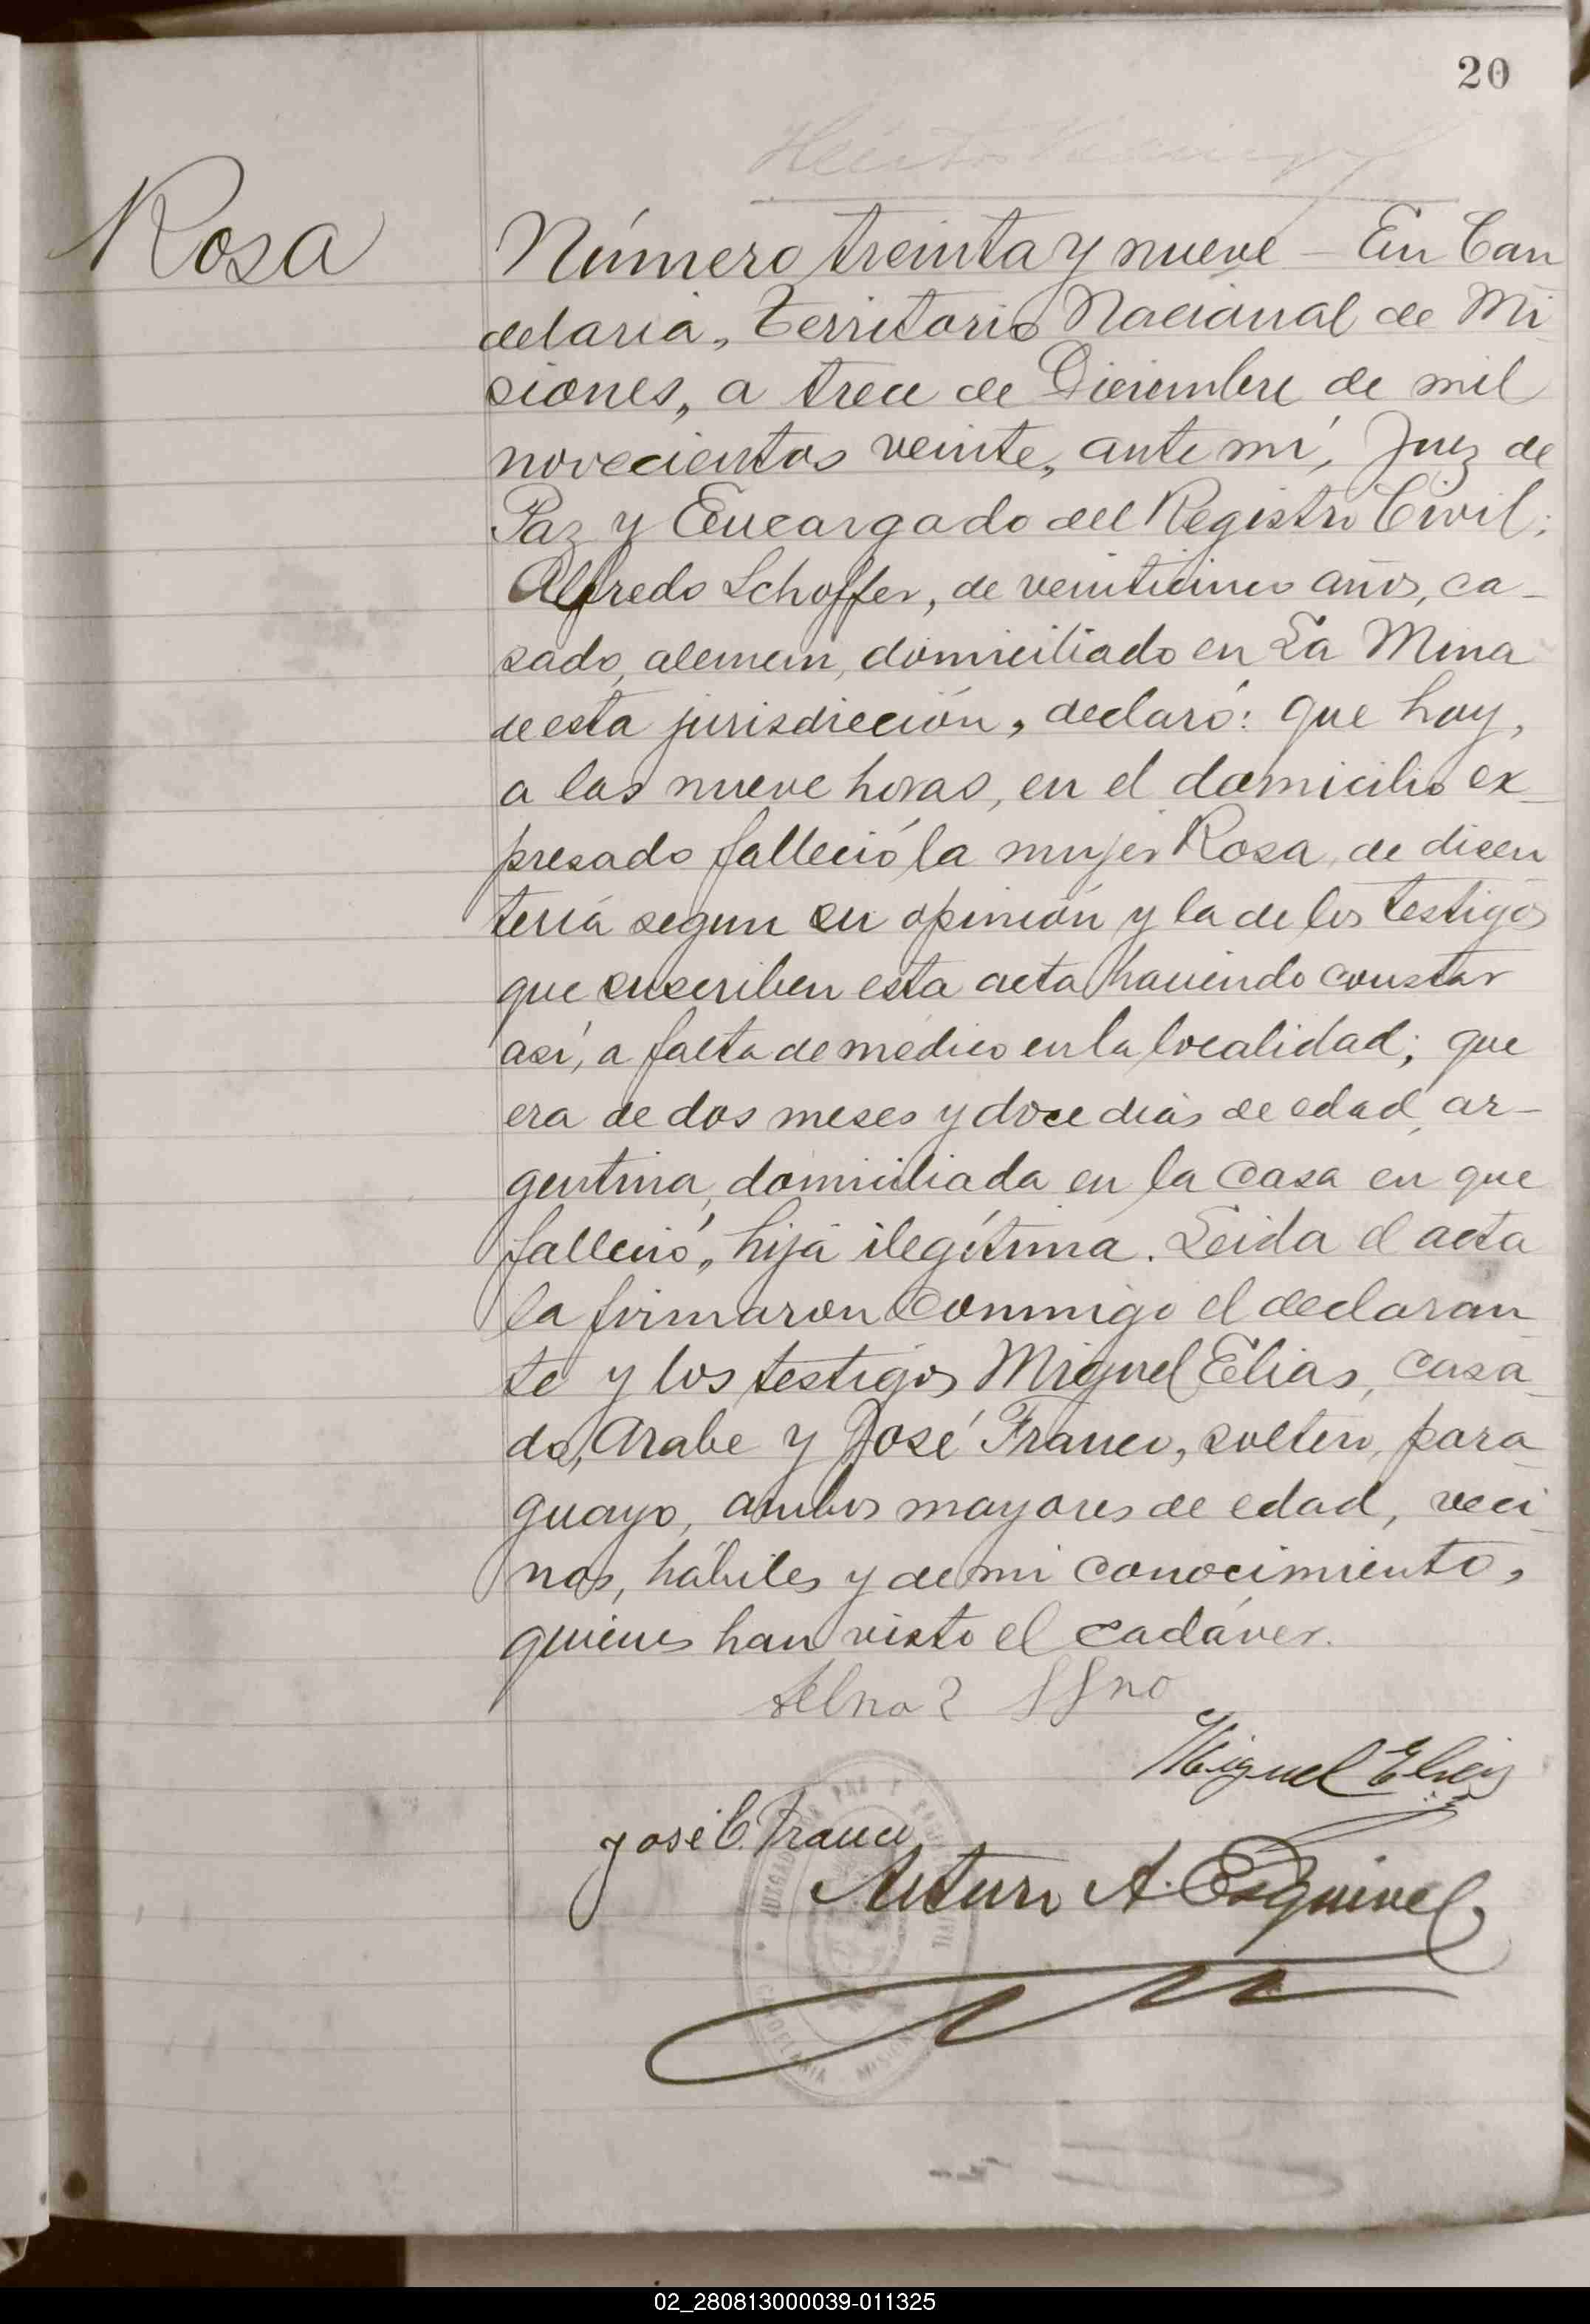 20
Rosa
Número treinta y nueve – En Can
delaria, Territorio Nacional de Mi
siones, a trece de Diciembre de mil
novecientos veinte, ante mí, Juez de
Paz y Encargado del Registro Civil;
Alfredo Schoffer, de veinticinco años, ca-
sado, aleman, domiciliado en La Mina
de esta jurisdicción, declaró: que hoy,
a las nueve horas, en el domicilio ex-
presado falleció la mujer Rosa, de disen
tería segun su opinión y la de los testigos
que suscriben esta acta haciendo constar
así, a falta de médico en la localidad; que
era de dos meses y doce días de edad, ar-
gentina, domiciliada en la casa en que
falleció, hija ilegítima. Leida el acta
la firmaron conmigo el declaran
te y los testigos Miguel Elias, casa-
do, Arabe y José Franco, soltero, para
guayo, ambos mayores de edad, veci
nos, hábiles y de mi conocimiento,
quienes han visto el cadáver.
Miguel Elias
José C. Franco
Arturo A. Esquivel
JUZGADO DE PAZ Y
CANDELARIA MISIONES
02_280813000039-011325